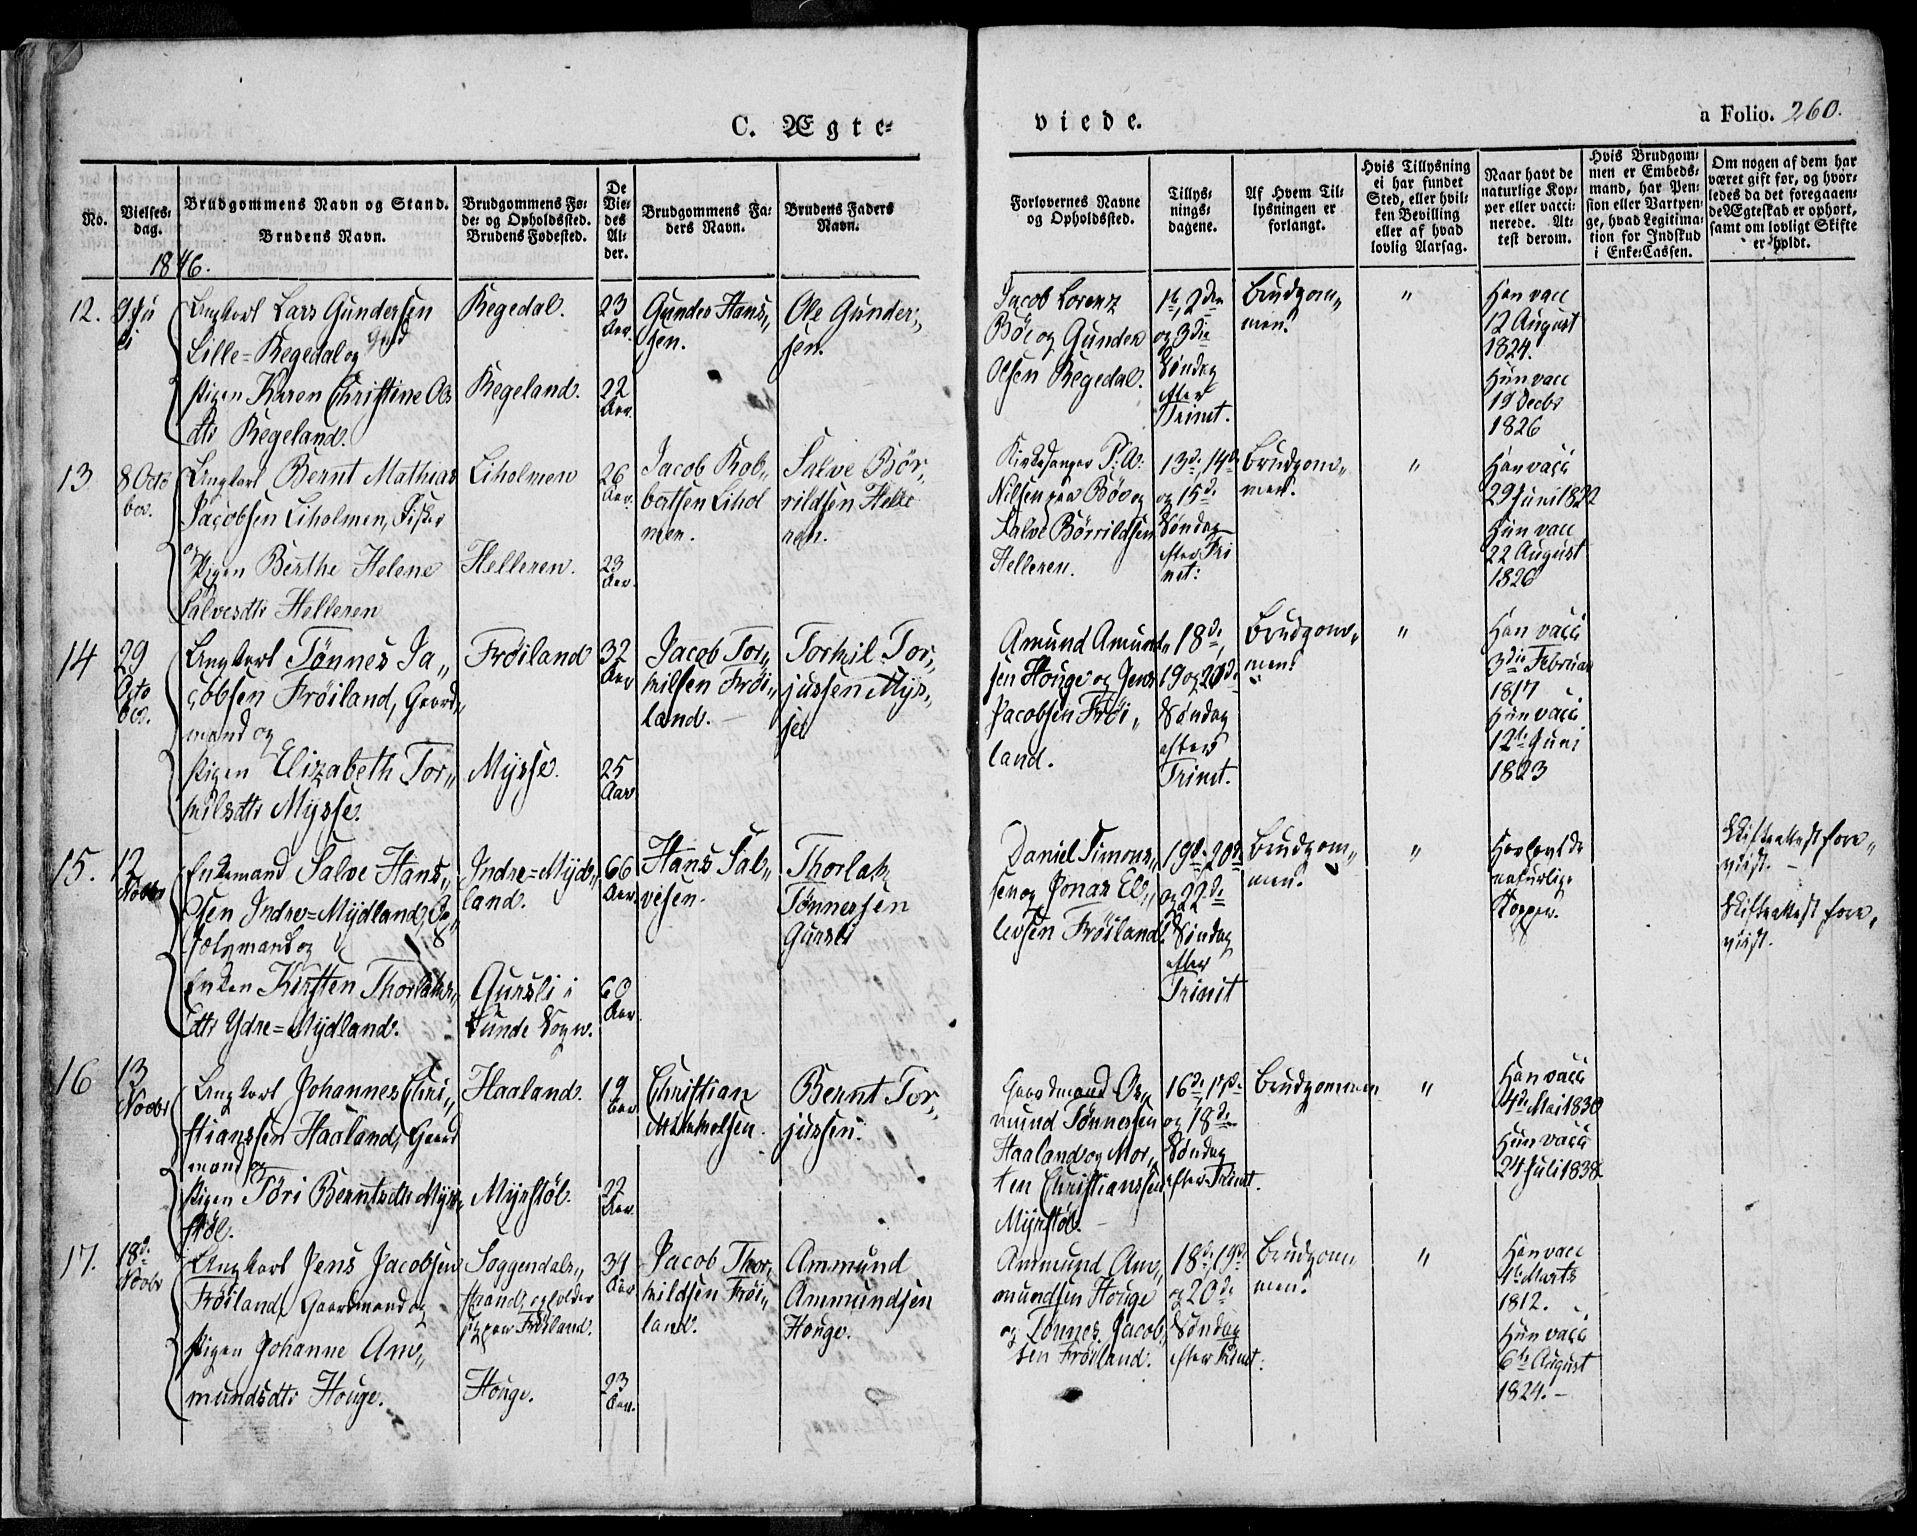 C. Ægte-
viede.
a Folio. 260.
No.
Vielses-
dag.
Brudgommens Navn og Stand.
Brudens Navn.
Brudgommens Fø-
de- og Opholdssted.
Brudens Fødested.
De
Vie-
des
Al-
der.
Brudgommens Fa-
ders Navn.
Brudens Faders
Navn.
Forlovernes Navne
og Opholdssted.
Tillys-
nings-
dagene.
Af Hvem Til-
lysningen er
forlangt.
Hvis Tillysning
ei har fundet
Sted, eller hvil-
ken Bevilling
eller af hvad
lovlig Aarsag.
Naar havt de
naturlige Kop-
per eller vacci-
nerede. At-
test derom.
Hvis Brudgom-
men er Embeds-
mand, har Pen-
sion eller Vartpen-
ge, hvad Legitima-
tion for Indskud
i Enke-Cassen.
Om nogen af dem har
været gift før, og hvor-
ledes da det foregaaen-
de Ægteskab er ophørt,
samt om lovligt Skifte
er holdt.
1846.
12.
Ungkarl Lars Gundersen
Lille-Regedal og
Pigen Karen Christine Ols
dtr Regeland.
Regedal.
Regeland.
23
Aar.
22
Aar.
Gunder Hans„
sen.
Ole Gunder„
sen.
Jacob Lorenz
Böe og Gunder
Olsen Regedal.
1te, 2den
og 3die
Søndag
efter
Trinit.
Brudgom„
men.
"
Han vacc
12 August
1824.
Hun vacc
19 Decbr
1826
13.
8 Octo
ber.
Ungkarl Bernt Mathias
Jacobsen Liholmen, Fisker
og
Pigen Berthe Helene
Salvesdtr Helleren
Liholmen
Helleren.
26
Aar.
23
Aar.
Jacob Rob„
bertsen Lihol
men.
Salve Bør„
rildsen Helle
ren.
Kirkesanger P: A:
Nilsen paa Böe og
Salve Børrildsen
Helleren.
13de, 14de
og 15de
Søndag
efter Tri
nit:
Brudgom„
men.
"
Han vacc
29 Juni 1822
Hun vacc
22 August
1826
14
29
Octo
ber.
Ungkarl Tønnes Ja„
cobsen Frøiland, Gaard„
mand og
Pigen Elizabeth Tor„
kilsdtr Mysse.
Frøiland
Mysse.
32
Aar
25
Aar
Jacob Tor„
kilsen Frøi„
land.
Torkil Tor„
jussen Mys„
se
Amund Amund„
sen Houge og Jens
Jacobsen Frøi„
land.
18de,
19 og 20de
Søndag
efter
Trinit.
Brudgom„
men.
"
Han vacc
3die Februar
1817
Hun vacc
12te Juni
1823
15.
12
Novbr
Enkemand Salve Hans„
sen Indre-Mydland,
og
Enken Kirsten Thorlaks„
dtr Ydre-Mydland.
Indre-Myd„
land.
Gursli i
Lunde Sogn.
66
Aar.
60
Aar.
Hans Sal„
vesen.
Thorlak
Tønnessen
Gursli
Daniel Simons„
sen og Jonas El„
levsen Frøiland
19de, 20de
og 22de
Søndag
efter
Trinit
Brudgom„
men.
"
Har havt de
naturlige
Kopper.
Skifteattest fore„
viist. —
Skifteattest fore„
viist.
16
13
Novbr
Ungkarl Johannes Chri„
stianssen Haaland, Gaard
mand og
Pigen Tori Berntsdtr Myr„
støl.
Haaland.
Myrstøl.
19
Aar
22
Aar.
Christian
Mikkelsen.
Bernt Tor„
jussen.
Gaardmand Os„
mund Tønnessen
Haaland og Mor„
ten Christianssen
Myrstøl.
16de, 17de
og 18de
Søndag
efter Trinit.
Brudgommen
"
Han vacc
4de Mai 1830
Hun vacc
24 Juli 1838
17.
18de
Novbr
Ungkarl Jens Jacobsen
Frøiland Gaardmand og
Pigen Johanne Am„
mundsdtr Houge.
Soggendals„
strand, opholder
sig paa Frøiland.
Houge.
34
Aar
23
Aar.
Jacob Thor„
kildsen Frøi„
land.
Ammund
Ammundsen
Houge.
Ammund Am„
mundsen Houge
og Tønnes Jacob„
sen Frøiland.
18de, 19de
og 20de
Søndag
efter Trinit:
Brudgom„
men.
"
Han vacc
4de Marts
1812.
Hun vacc
6te August
1824. —